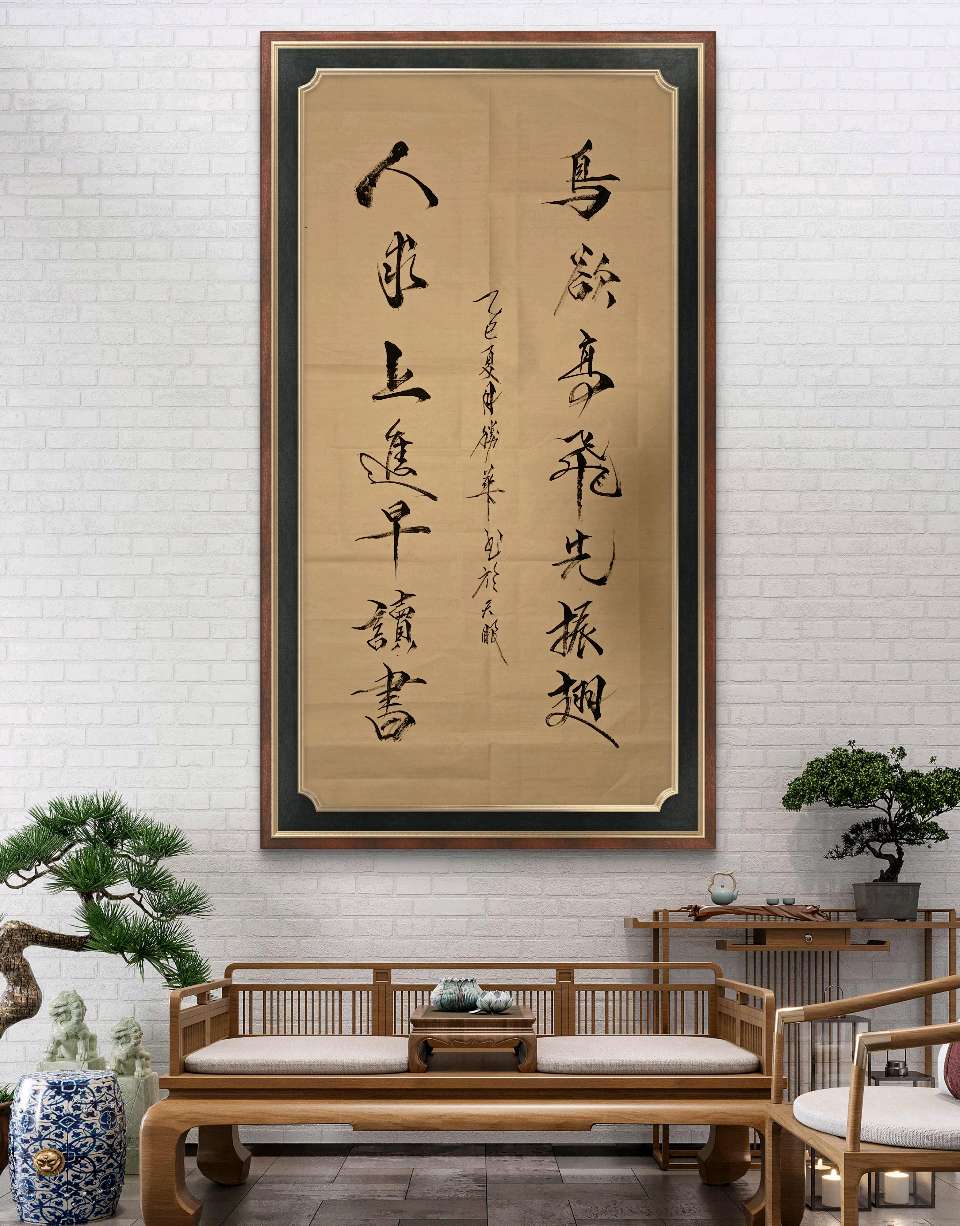 鳥欲高飛先振翅
人求上進早讀書
乙巳夏勝華书於天眼